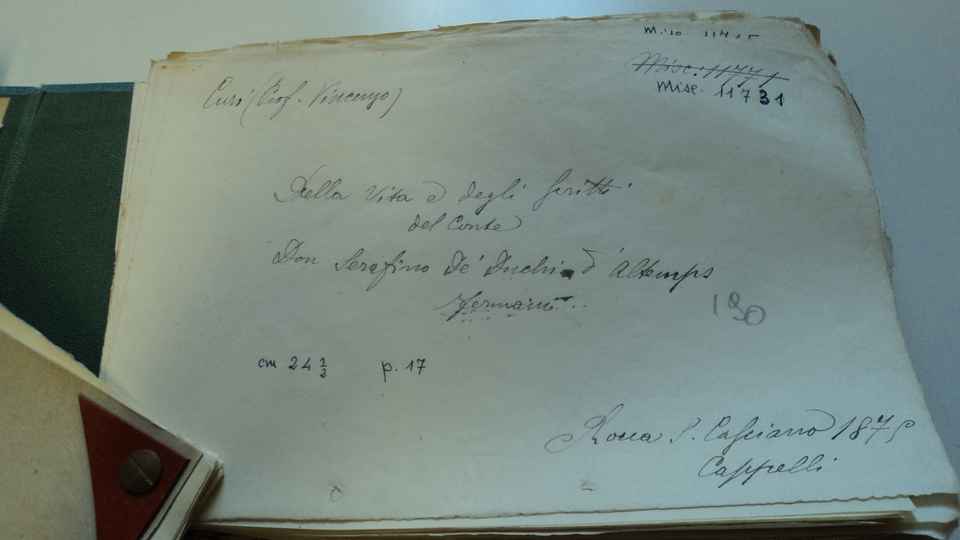 Misc. 11731
Misc. 11771
Misc. 11731
(Prof. Vincenzo)
Della Vita e degli Scritti
del Conte
Don Serafino De' Duchi d'Altemps
190
cm 24 1/2 p. 17
Rocca S. Casciano 1875
Cappelli